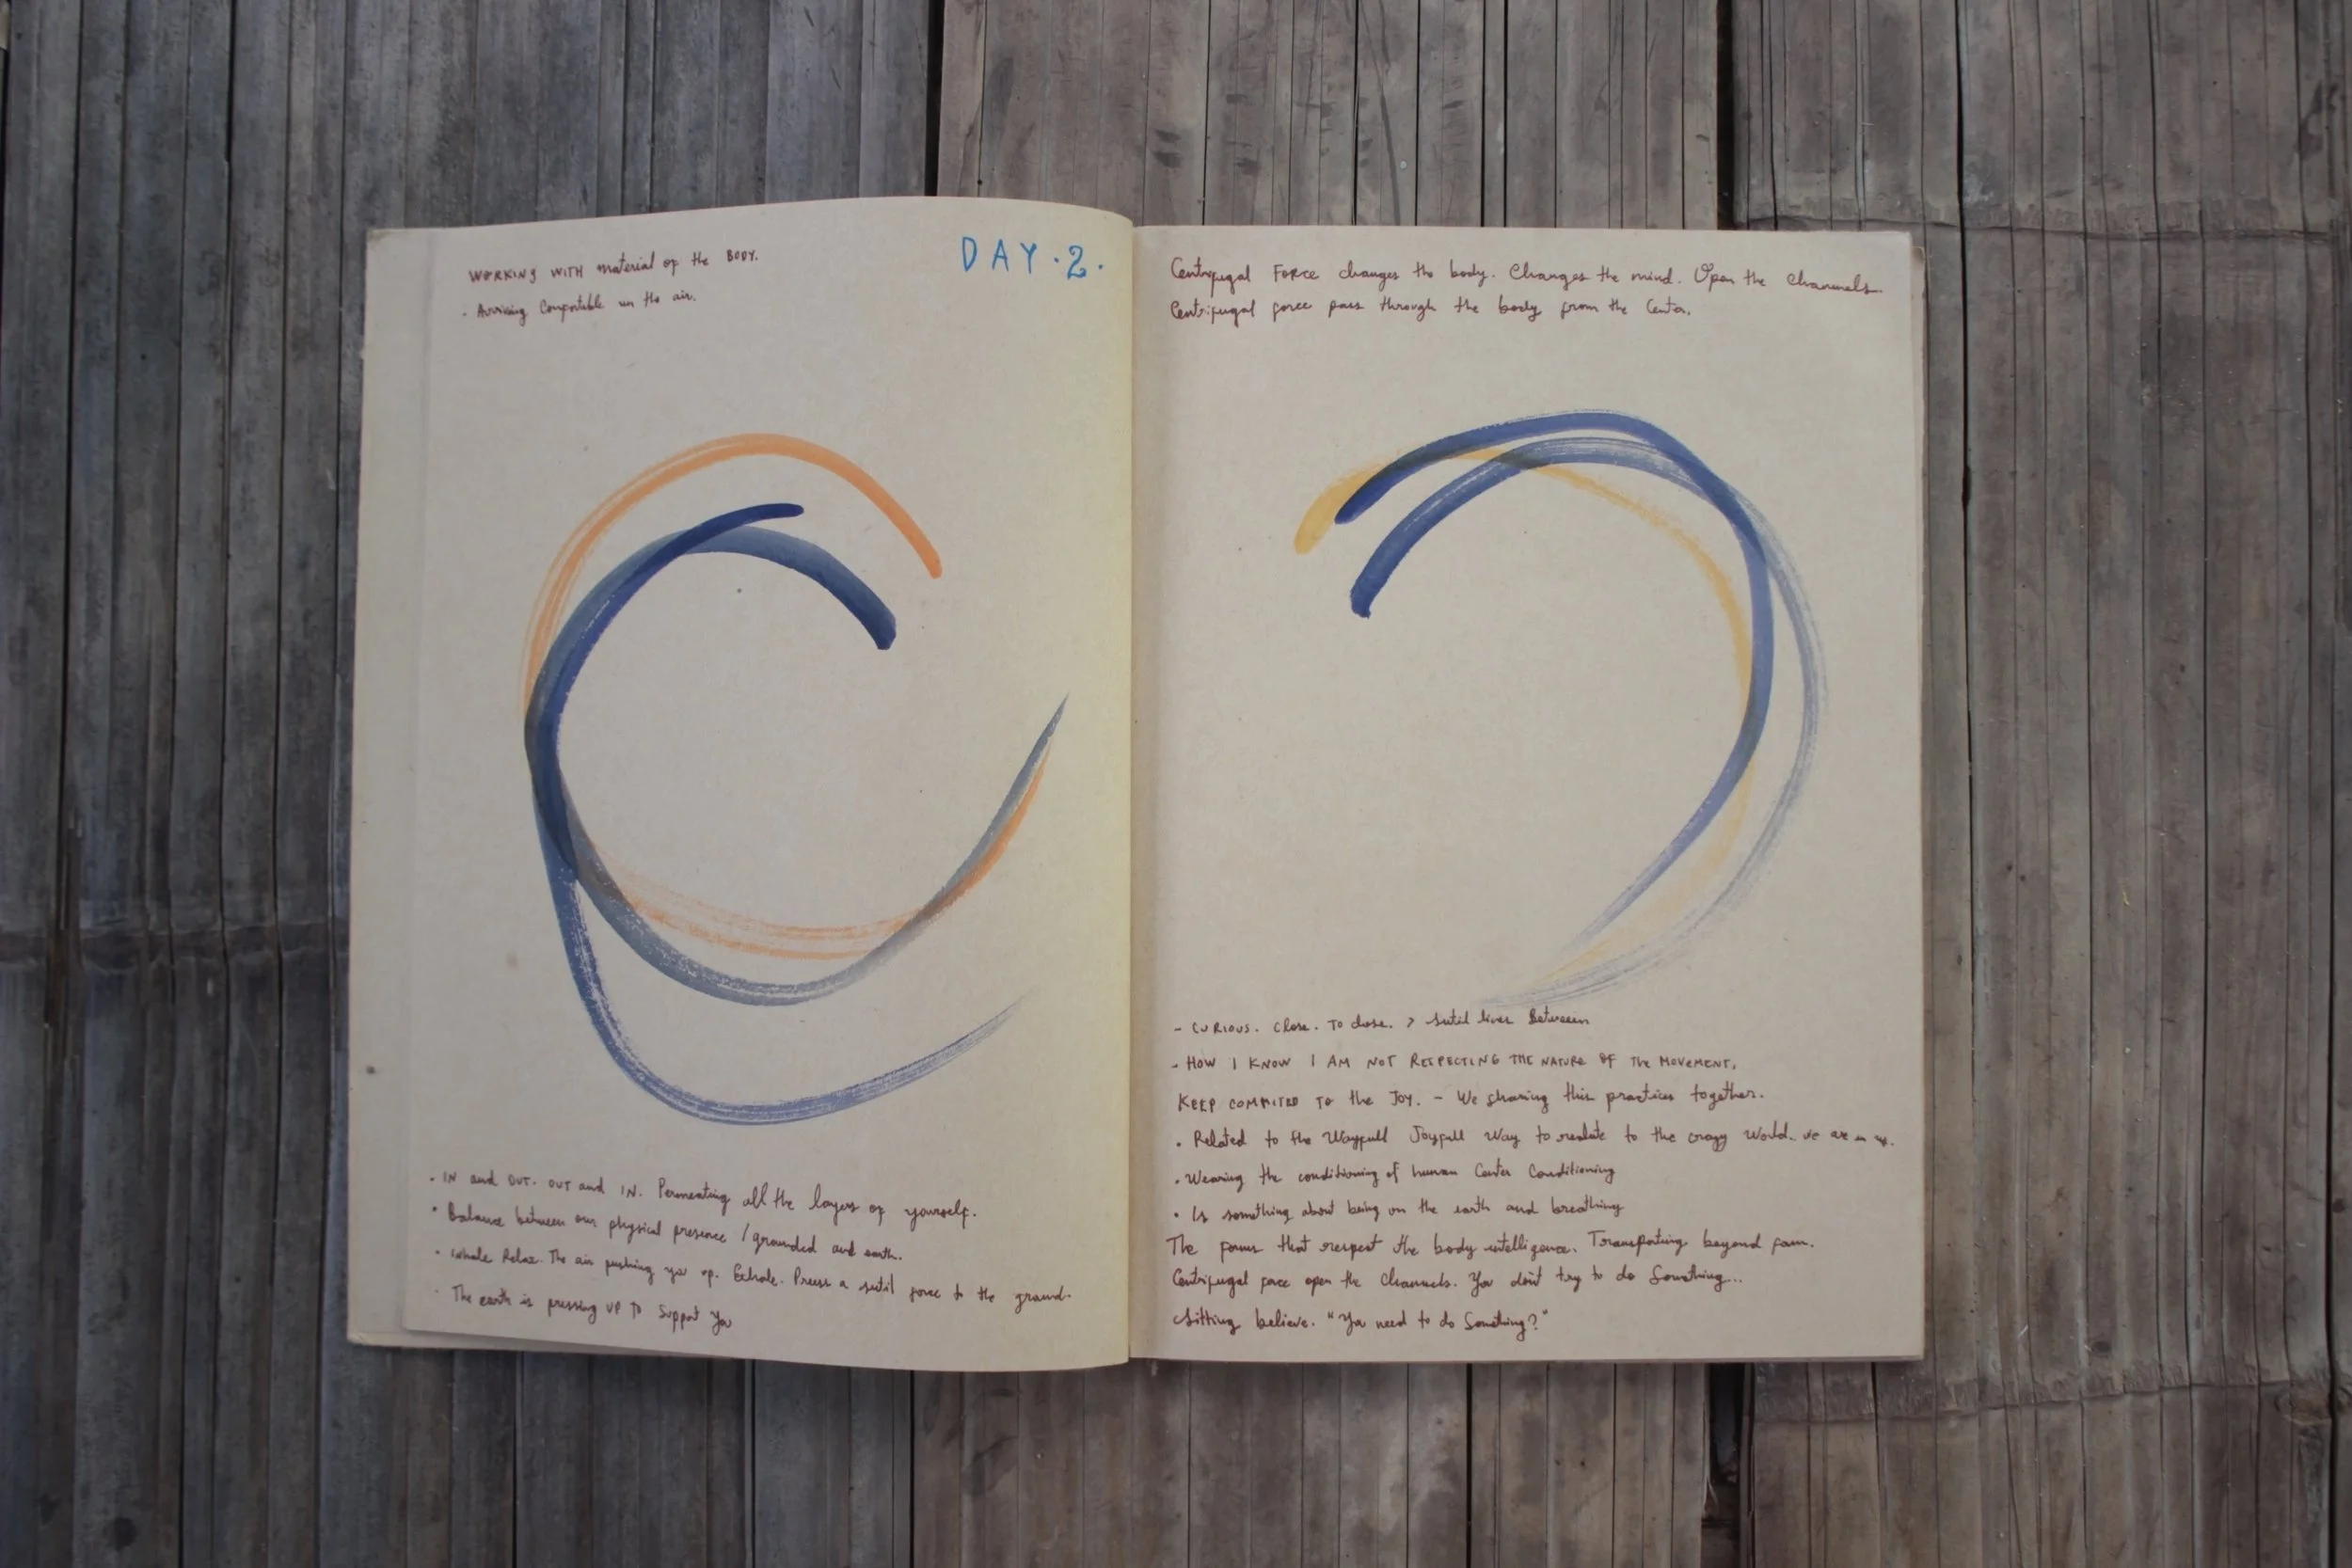 WORKING WITH material of the BODY.
- Arriving Confortable in the air.
DAY.2.
. IN and OUT. OUT and IN. Permeating all the layers of yourself.
. Balance between our physical presence / grounded and earth.
. inhale Relax. The air pushing you up. Exhale. Press a sutil force to the ground.
. The earth is pressing UP TO support you
Centrifugal FORCE changes the body. Changes the mind. Open the Channels.
Centrifugal force pass through the body from the Center.
- CURIOUS. Close. To close. > sutil lines Between
- HOW I KNOW I AM NOT RESPECTING THE NATURE OF THE MOVEMENT.
KEEP COMMITED TO the JOY. - We sharing this practices together.
. Related to the Wayfull Joyfull Way to relate to the crazy world. we are in
. Wearing the conditioning of human Center Conditioning
. Is something about being on the earth and breathing
The forms that respect the body intelligence. Transporting beyond form.
Centrifugal force open the Channels. You don't try to do Something...
Sitting believe. "You need to do Something?"